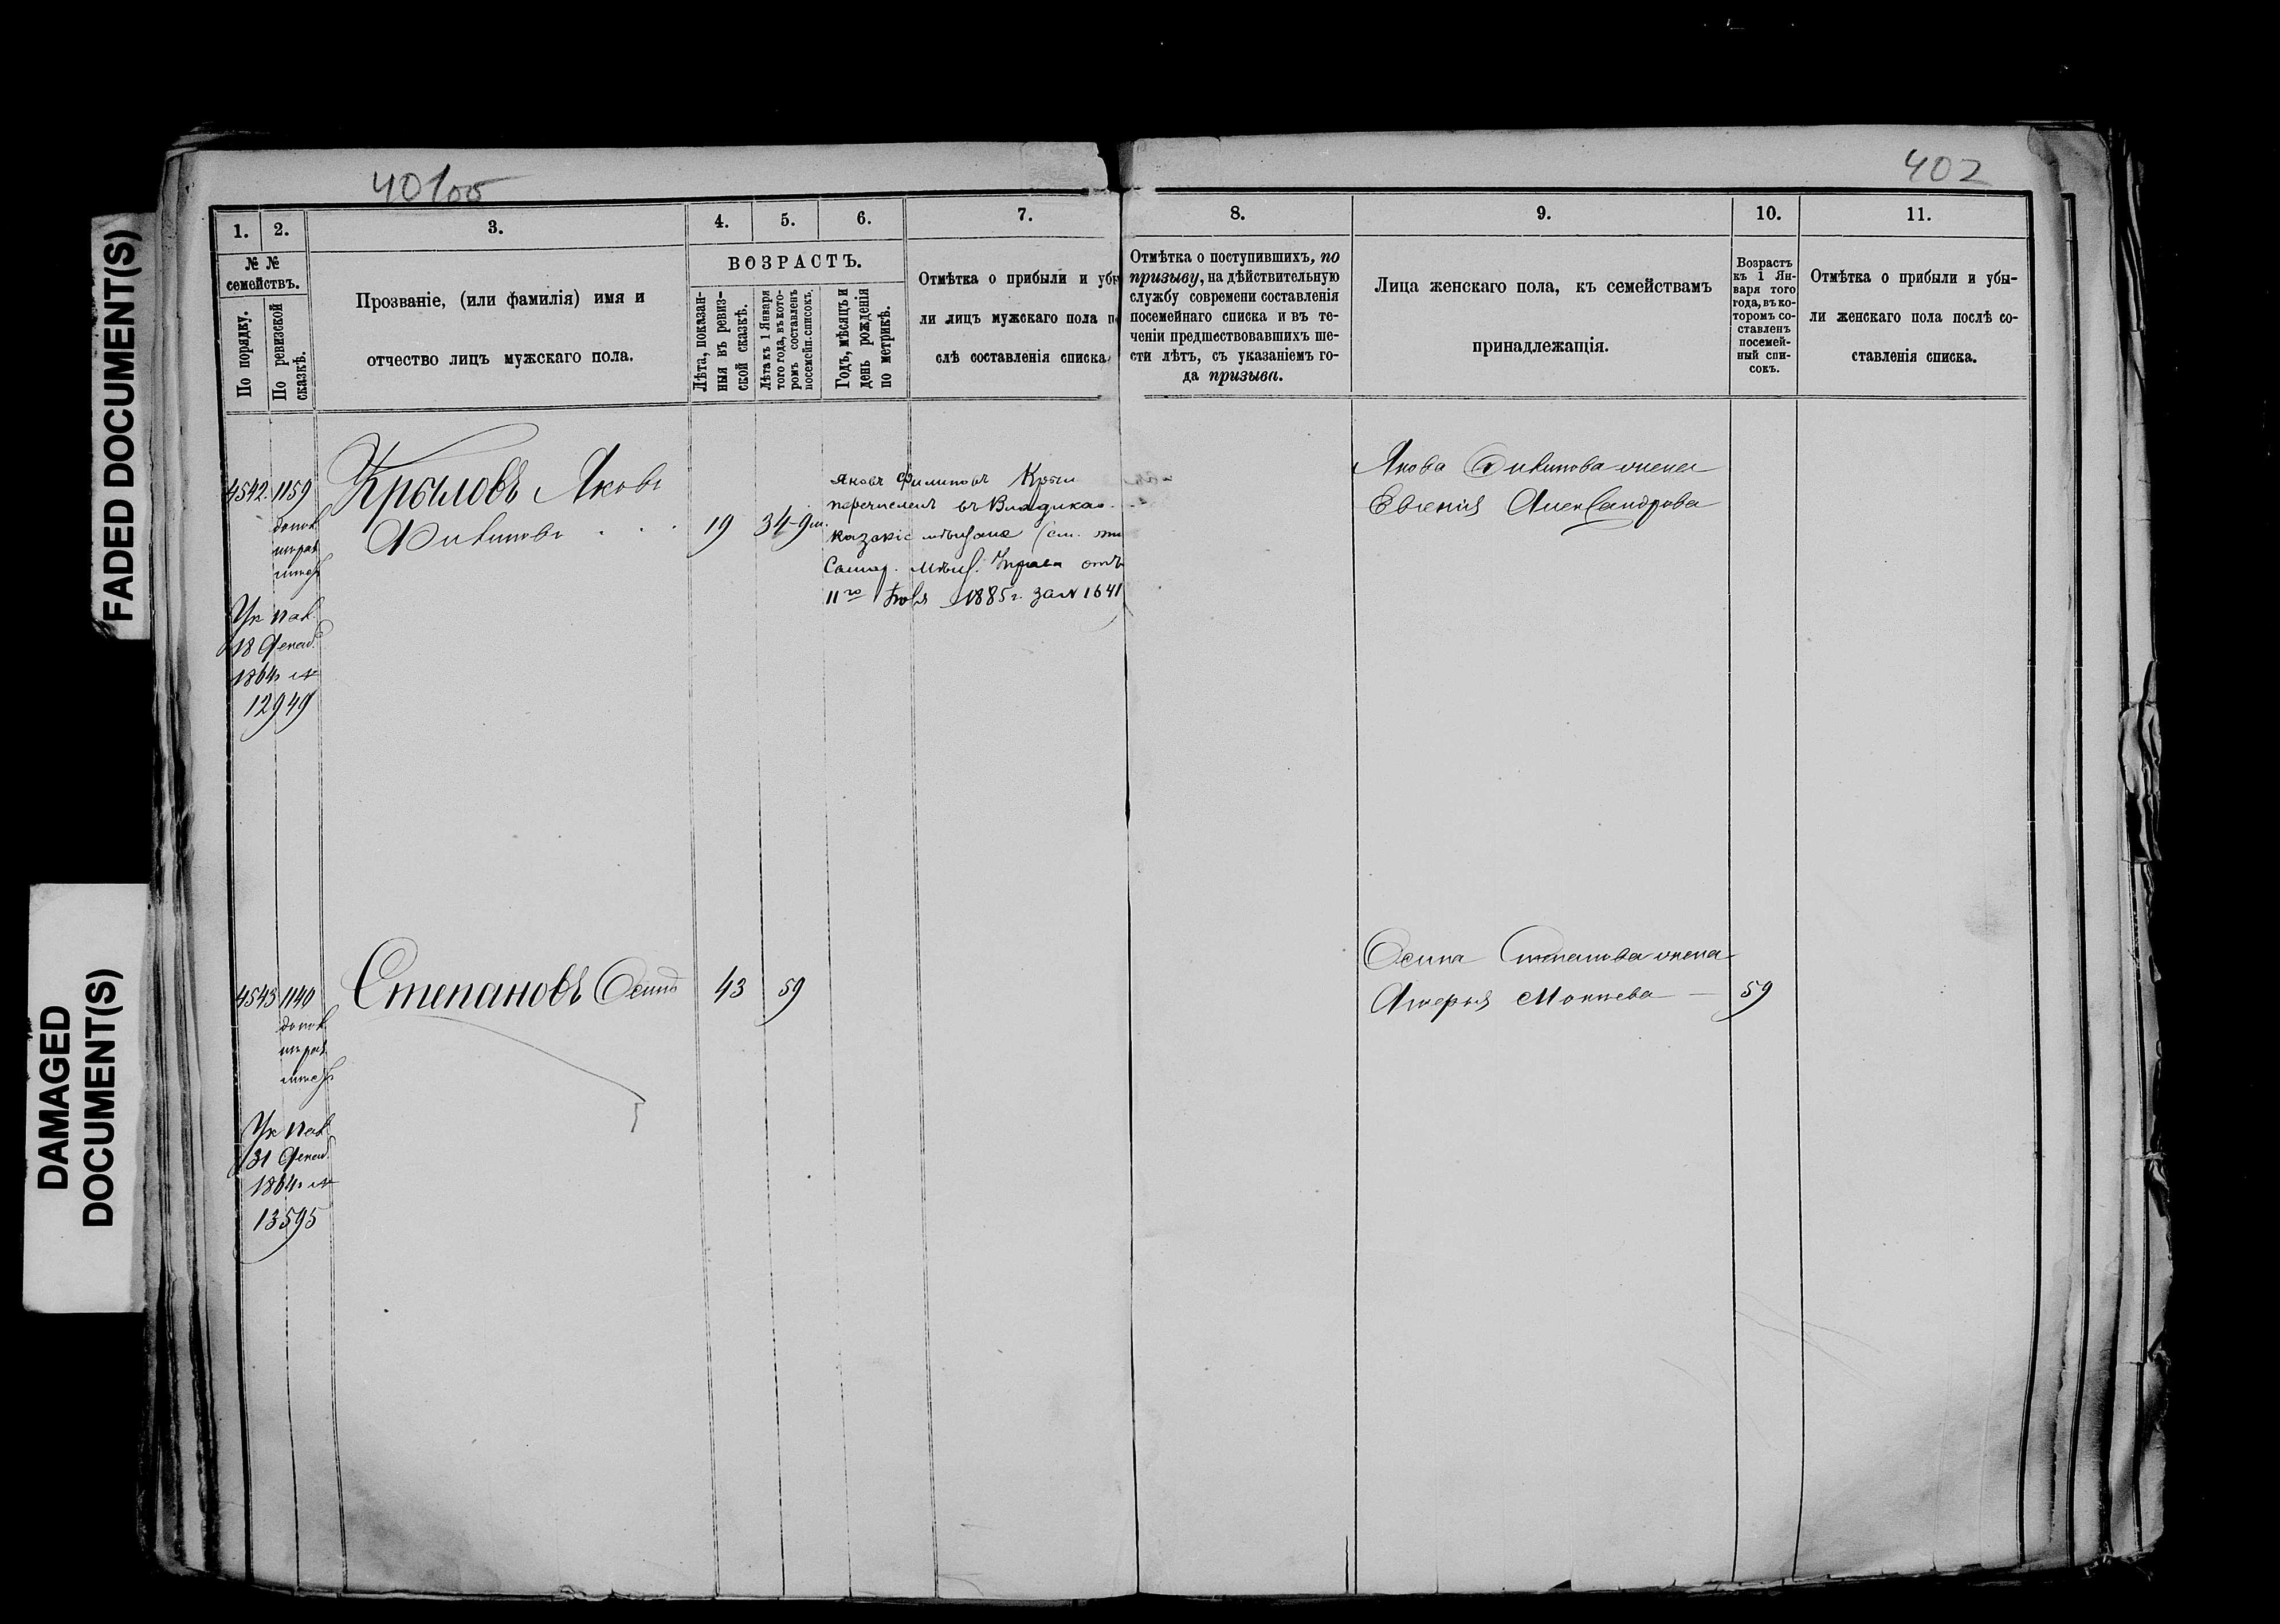 FADED DOCUMENT(S)
DAMAGED
DOCUMENT(S)
401об
402
1.
2.
3.
4.
5.
6.
7.
8.
9.
10.
11.
№ №
семействъ.
По порядку.
По ревизской
сказкѣ.
Прозваніе, (или фамилія) имя и
отчество лицъ мужскаго пола.
ВОЗРАСТЪ.
Лѣта, показан-
ныя въ ревиз-
ской сказкѣ.
Лѣта къ 1 Января
того года, въ кото-
ромъ составленъ
посемейн. списокъ.
Годъ, мѣсяцъ и
день рожденія
по метрикѣ.
Отмѣтка о прибыли и убы
ли лицъ мужскаго пола по
слѣ составленія списка
Отмѣтка о поступившихъ, по
призыву, на дѣйствительную
службу современи составленія
посемейнаго списка и въ те-
ченіи предшествовавшихъ ше-
сти лѣтъ, съ указаніемъ го-
да призыва.
Лица женскаго пола, къ семействамъ
принадлежащія.
Возрастъ
къ 1 Ян-
варя того
года, въ ко-
торомъ со-
ставленъ
посемей-
ный спи-
сокъ.
Отмѣтка о прибыли и убы-
ли женскаго пола послѣ со-
ставленія списка.
4542 1159
Крыловъ Яковъ
Филиповъ . . . 19 34-9м.
Яковъ Филиповъ Крыл
перечисленъ въ Владикав-
казскіе мѣщане (см.
Самар. Мѣщ. Управы отъ
11го 1885г. за N 1641
Якова Филипова жена
Евгенія Александрова
допол.
Ук. пал.
18 Декаб.
1864г №
12949
4543 1140
Степановъ Осипъ 43 59
Осипа Степанова жена
Мокиева — 59
допол.
Ук. пал.
31 Декаб.
1864г №
13595